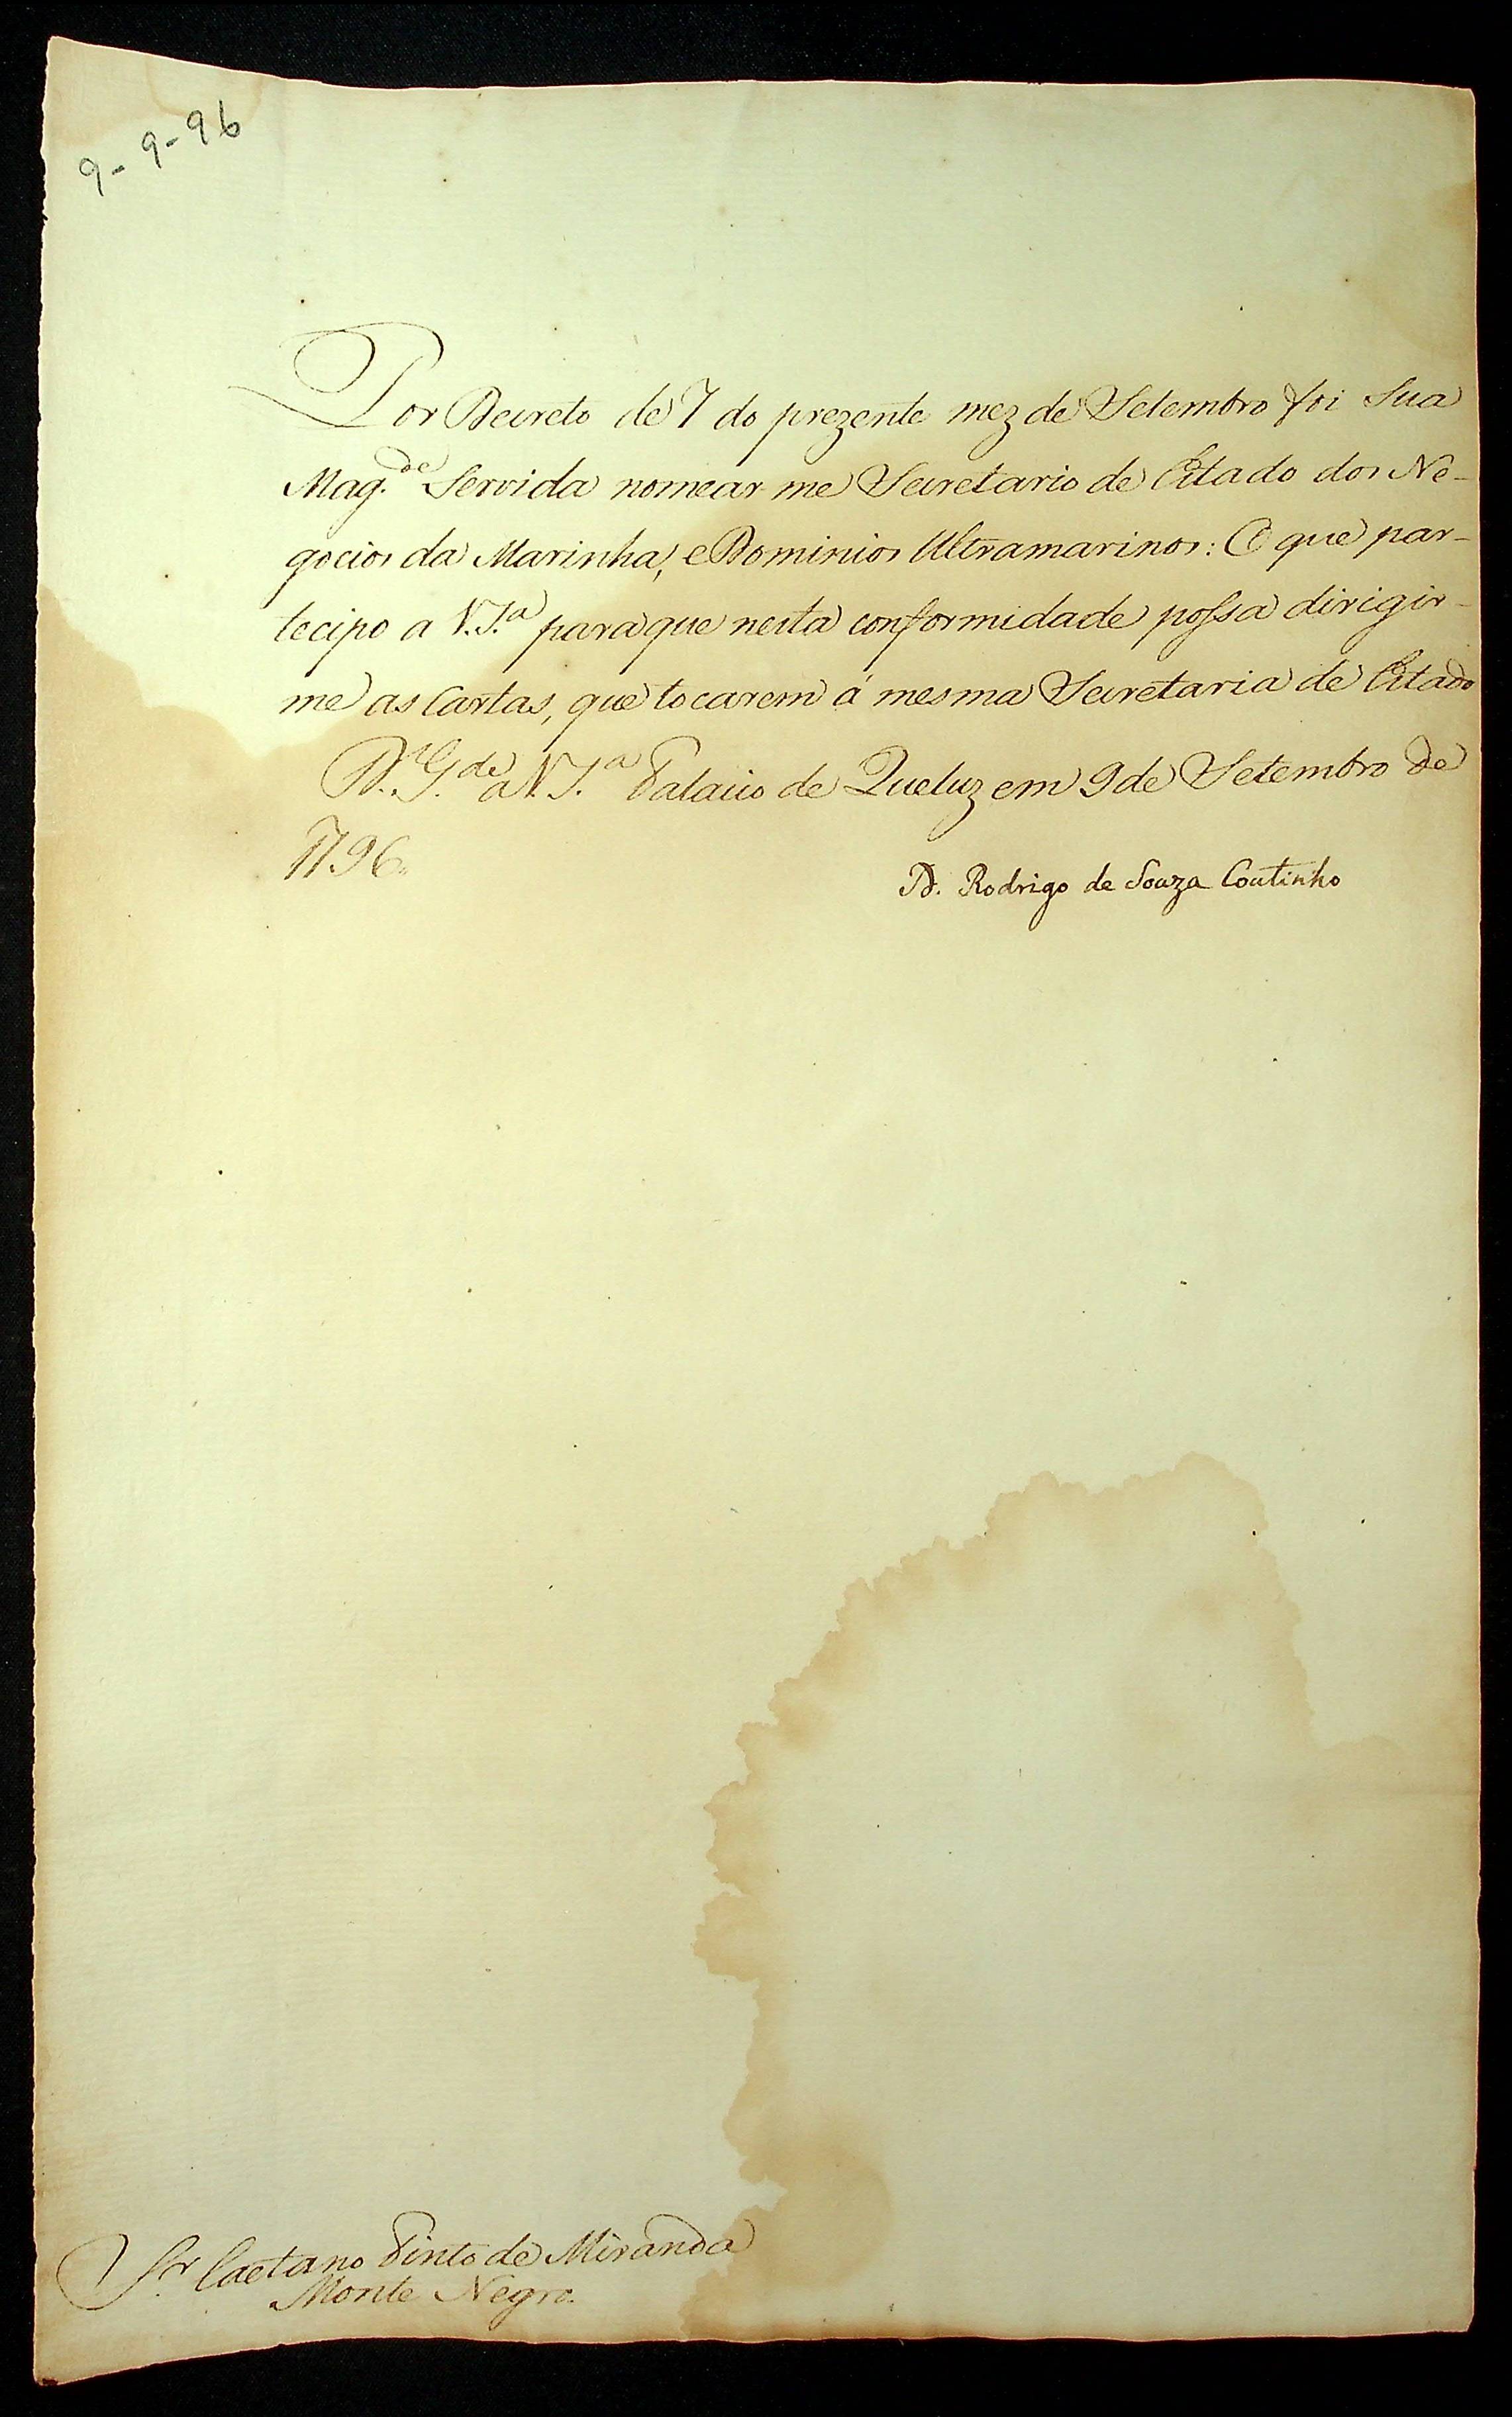 9-9-96
Por Decreto de 7 do prezente mez de Setembro foi Sua
Mag.de Servida nomear-me Secretario de Estado dos Ne-
gocios da Marinha, e Dominios Ultramarinos: O que par-
tecipo a V.S.a para que nesta conformidade possa dirigir-
me as Cartas, que tocarem á mesma Secretaria de Estado
D.s G.de a V.S.a Palacio de Queluz em 9 de Setembro de
1796.
D. Rodrigo de Souza Coutinho
S.r Caetano Pinto de Miranda
Monte Negro.